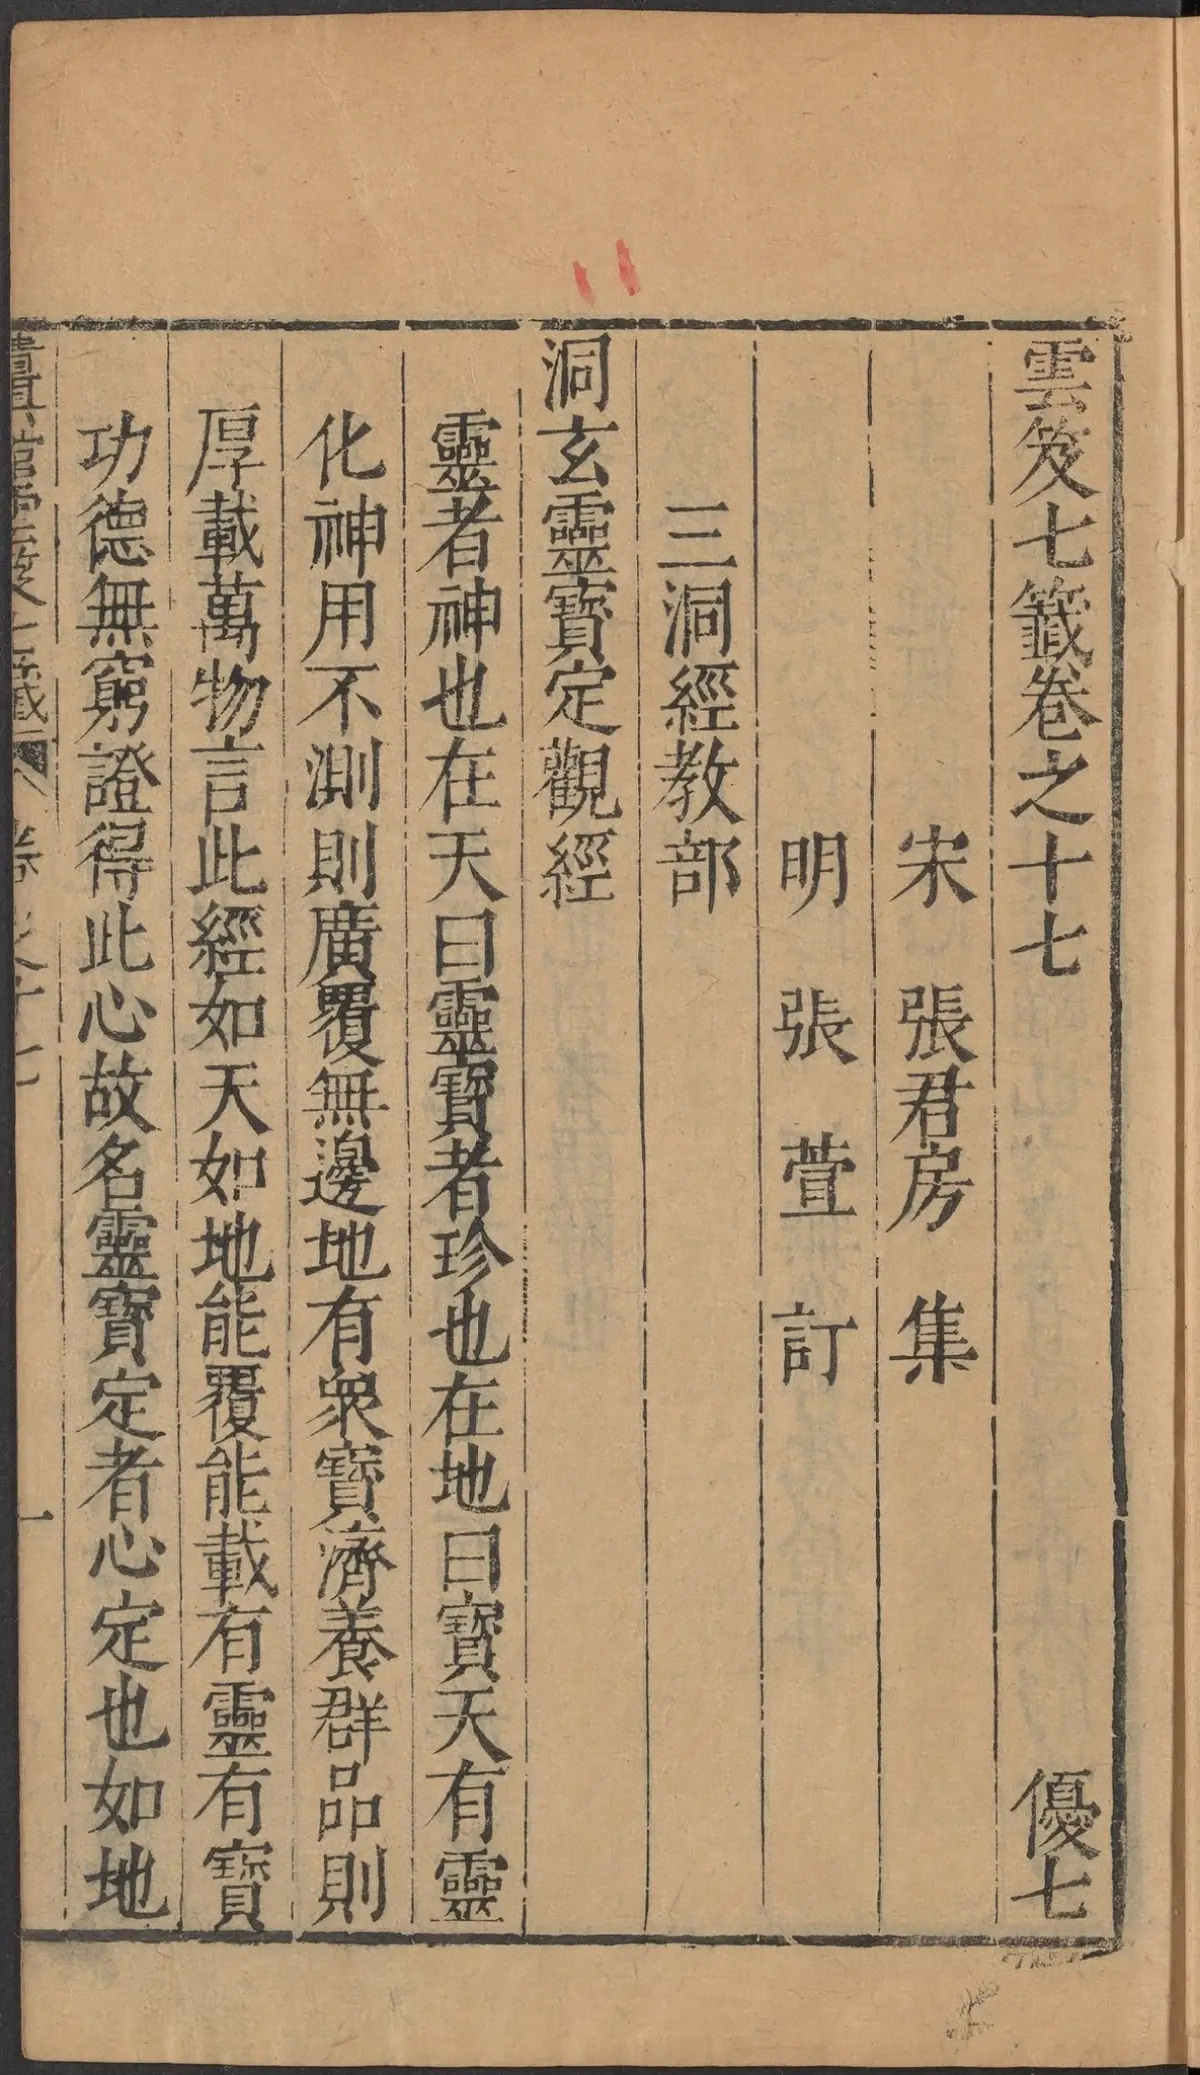 雲笈七籤卷之十七 優七
宋 張君房 集
明 張 萱 訂
三洞經教部
洞玄靈寶定觀經
靈者神也在天曰靈寶者珍也在地曰寶天有靈
化神用不測則廣覆無邊地有衆寶濟養群品則
厚載萬物言此經如天如地能覆能載有靈有寶
功德無窮證得此心故名靈寶定者心定也如地